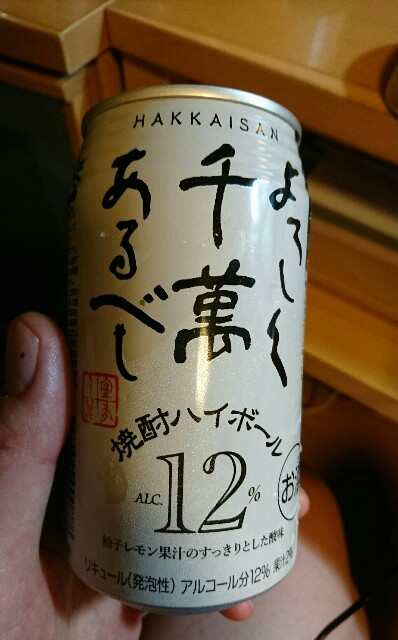 HAKKAISAN
よろしく
千萬
あるべし
焼酎ハイボール
ALC. 12%
お酒
柚子レモン果汁のすっきりとした酸味
リキュール(発泡性) アルコール分12% 果汁2%